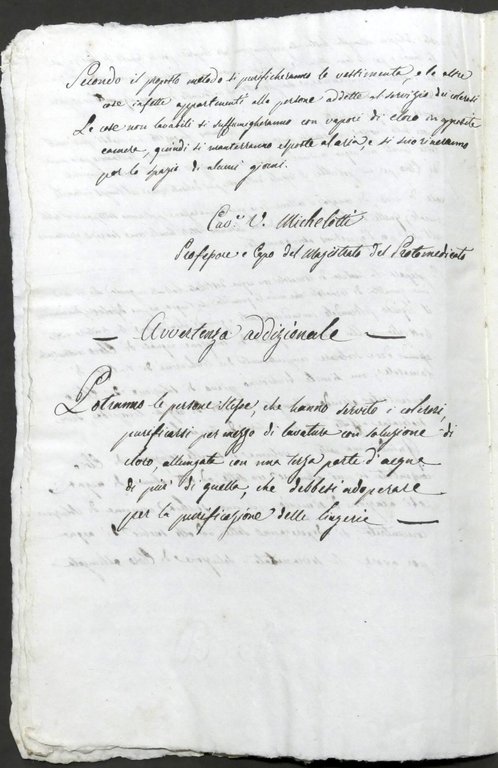 Secondo il proposto metodo si purificheranno le vestimenta, e le altre
cose infette appartenenti alle persone addette al servizio dei colerosi
Le cose non lavabili si suffumigheranno con vapori di cloro in apposita
camera, quindi si manterranno esposte all'aria e si scuoteranno
per lo spazio di alcuni giorni.
Cav.e V. Michelotti
Professore e Capo del Magistrato del Protomedicato
— Avvertenza addizionale —
Potranno le persone stesse, che hanno servito i colerosi,
purificarsi per mezzo di lavature con soluzione di
cloro, allungate con una terza parte d'acqua
di più di quella, che debbesi adoperare
per la purificazione delle lingerie —